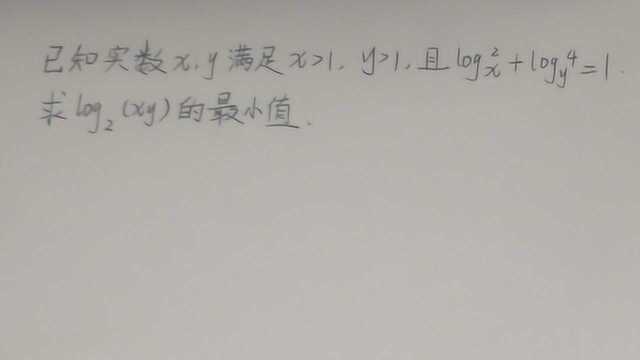 已知实数x,y满足x>1,y>1,且logₓ²+log_y⁴=1.
求log₂(xy)的最小值.